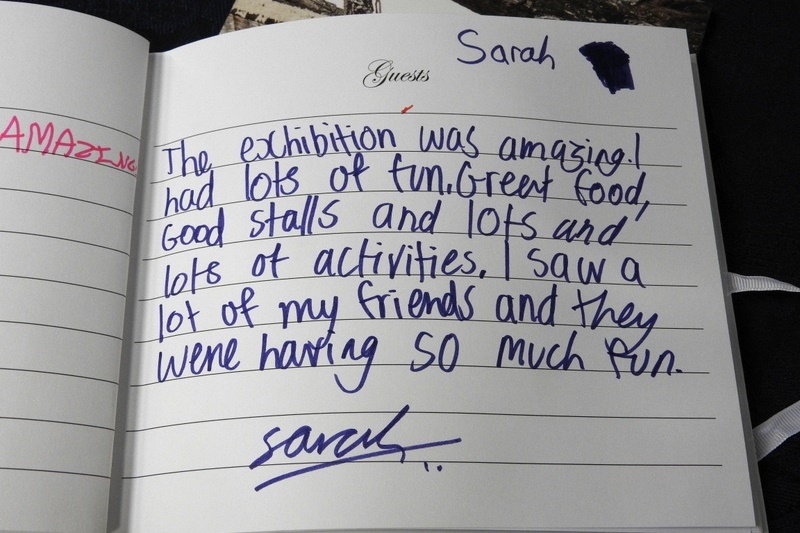 AMAZING
Sarah
Guests
The exhibition was amazing. I
had lots of fun. Great food,
Good stalls and lots and
lots of activities. I saw a
lot of my friends and they
were having so much fun.
sarah